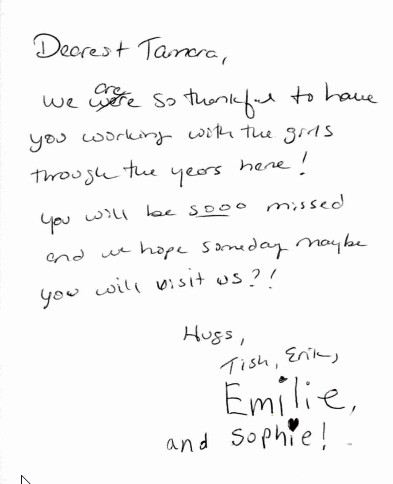 Dearest Tamara,
we are were so thankful to have
you working with the girls
through the years here!
you will be sooo missed
and we hope someday maybe
you will visit us?!
Hugs,
Tish, Erik,
Emilie,
and Sophie!